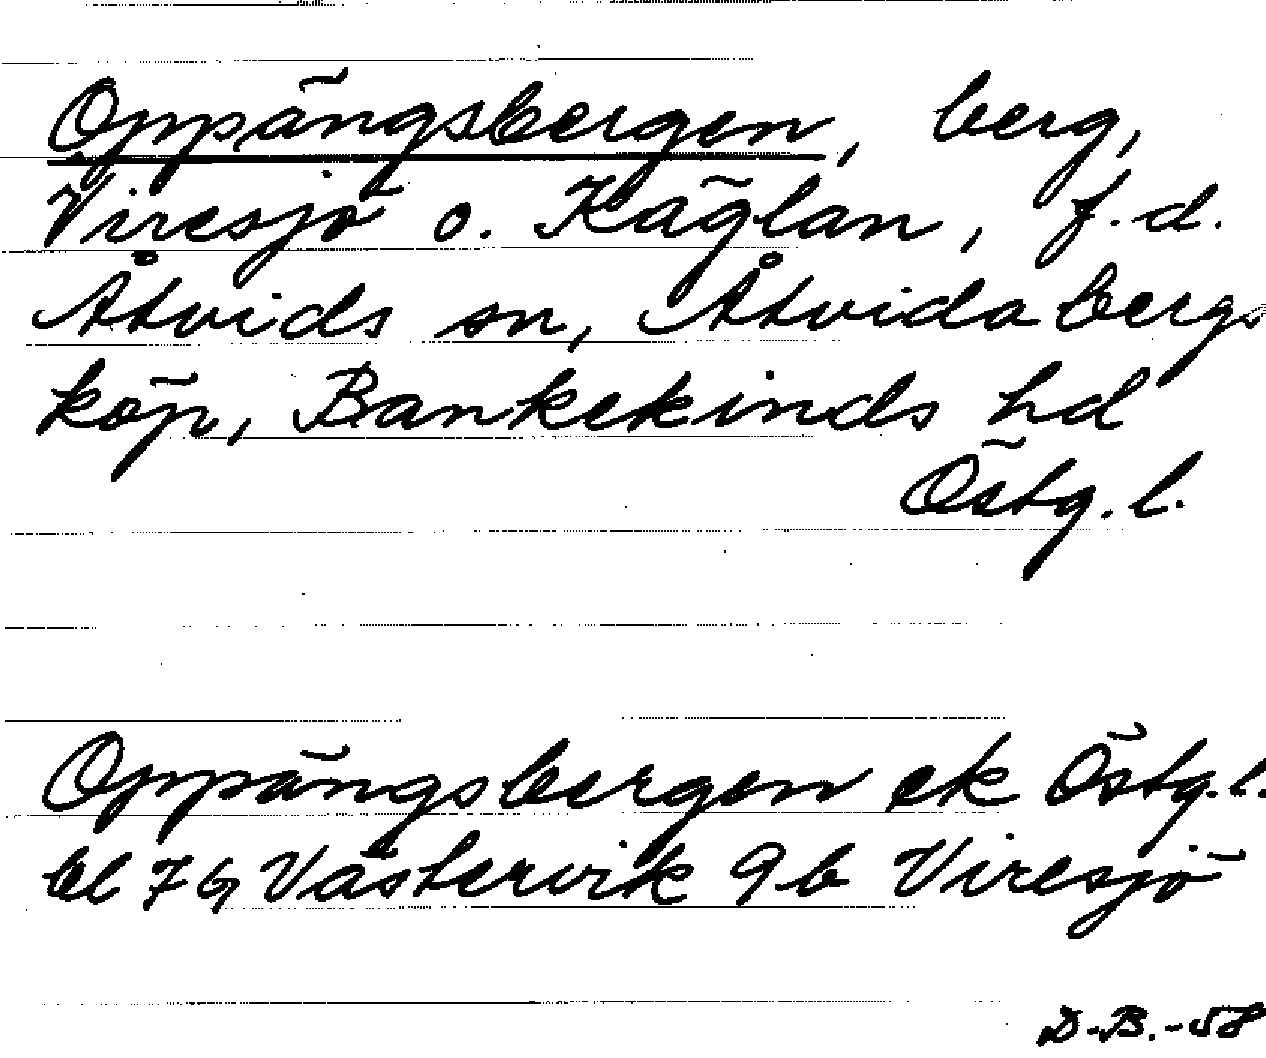 Oppängsbergen, berg,
Viresjö o. Käglan, f.d.
Åtvids sn, Åtvidabergs
köp, Bankekinds hd
Östg. l.
Oppängsbergen ek Östg. l.
bl 7 G Västervik 9b Viresjö
D-B.-58